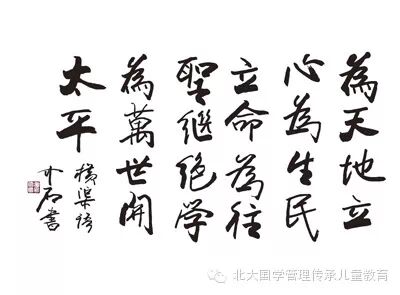 為天地立
心為生民
立命為往
聖继绝学
為萬世開
太平
横渠语
石書
北大国学管理传承儿童教育